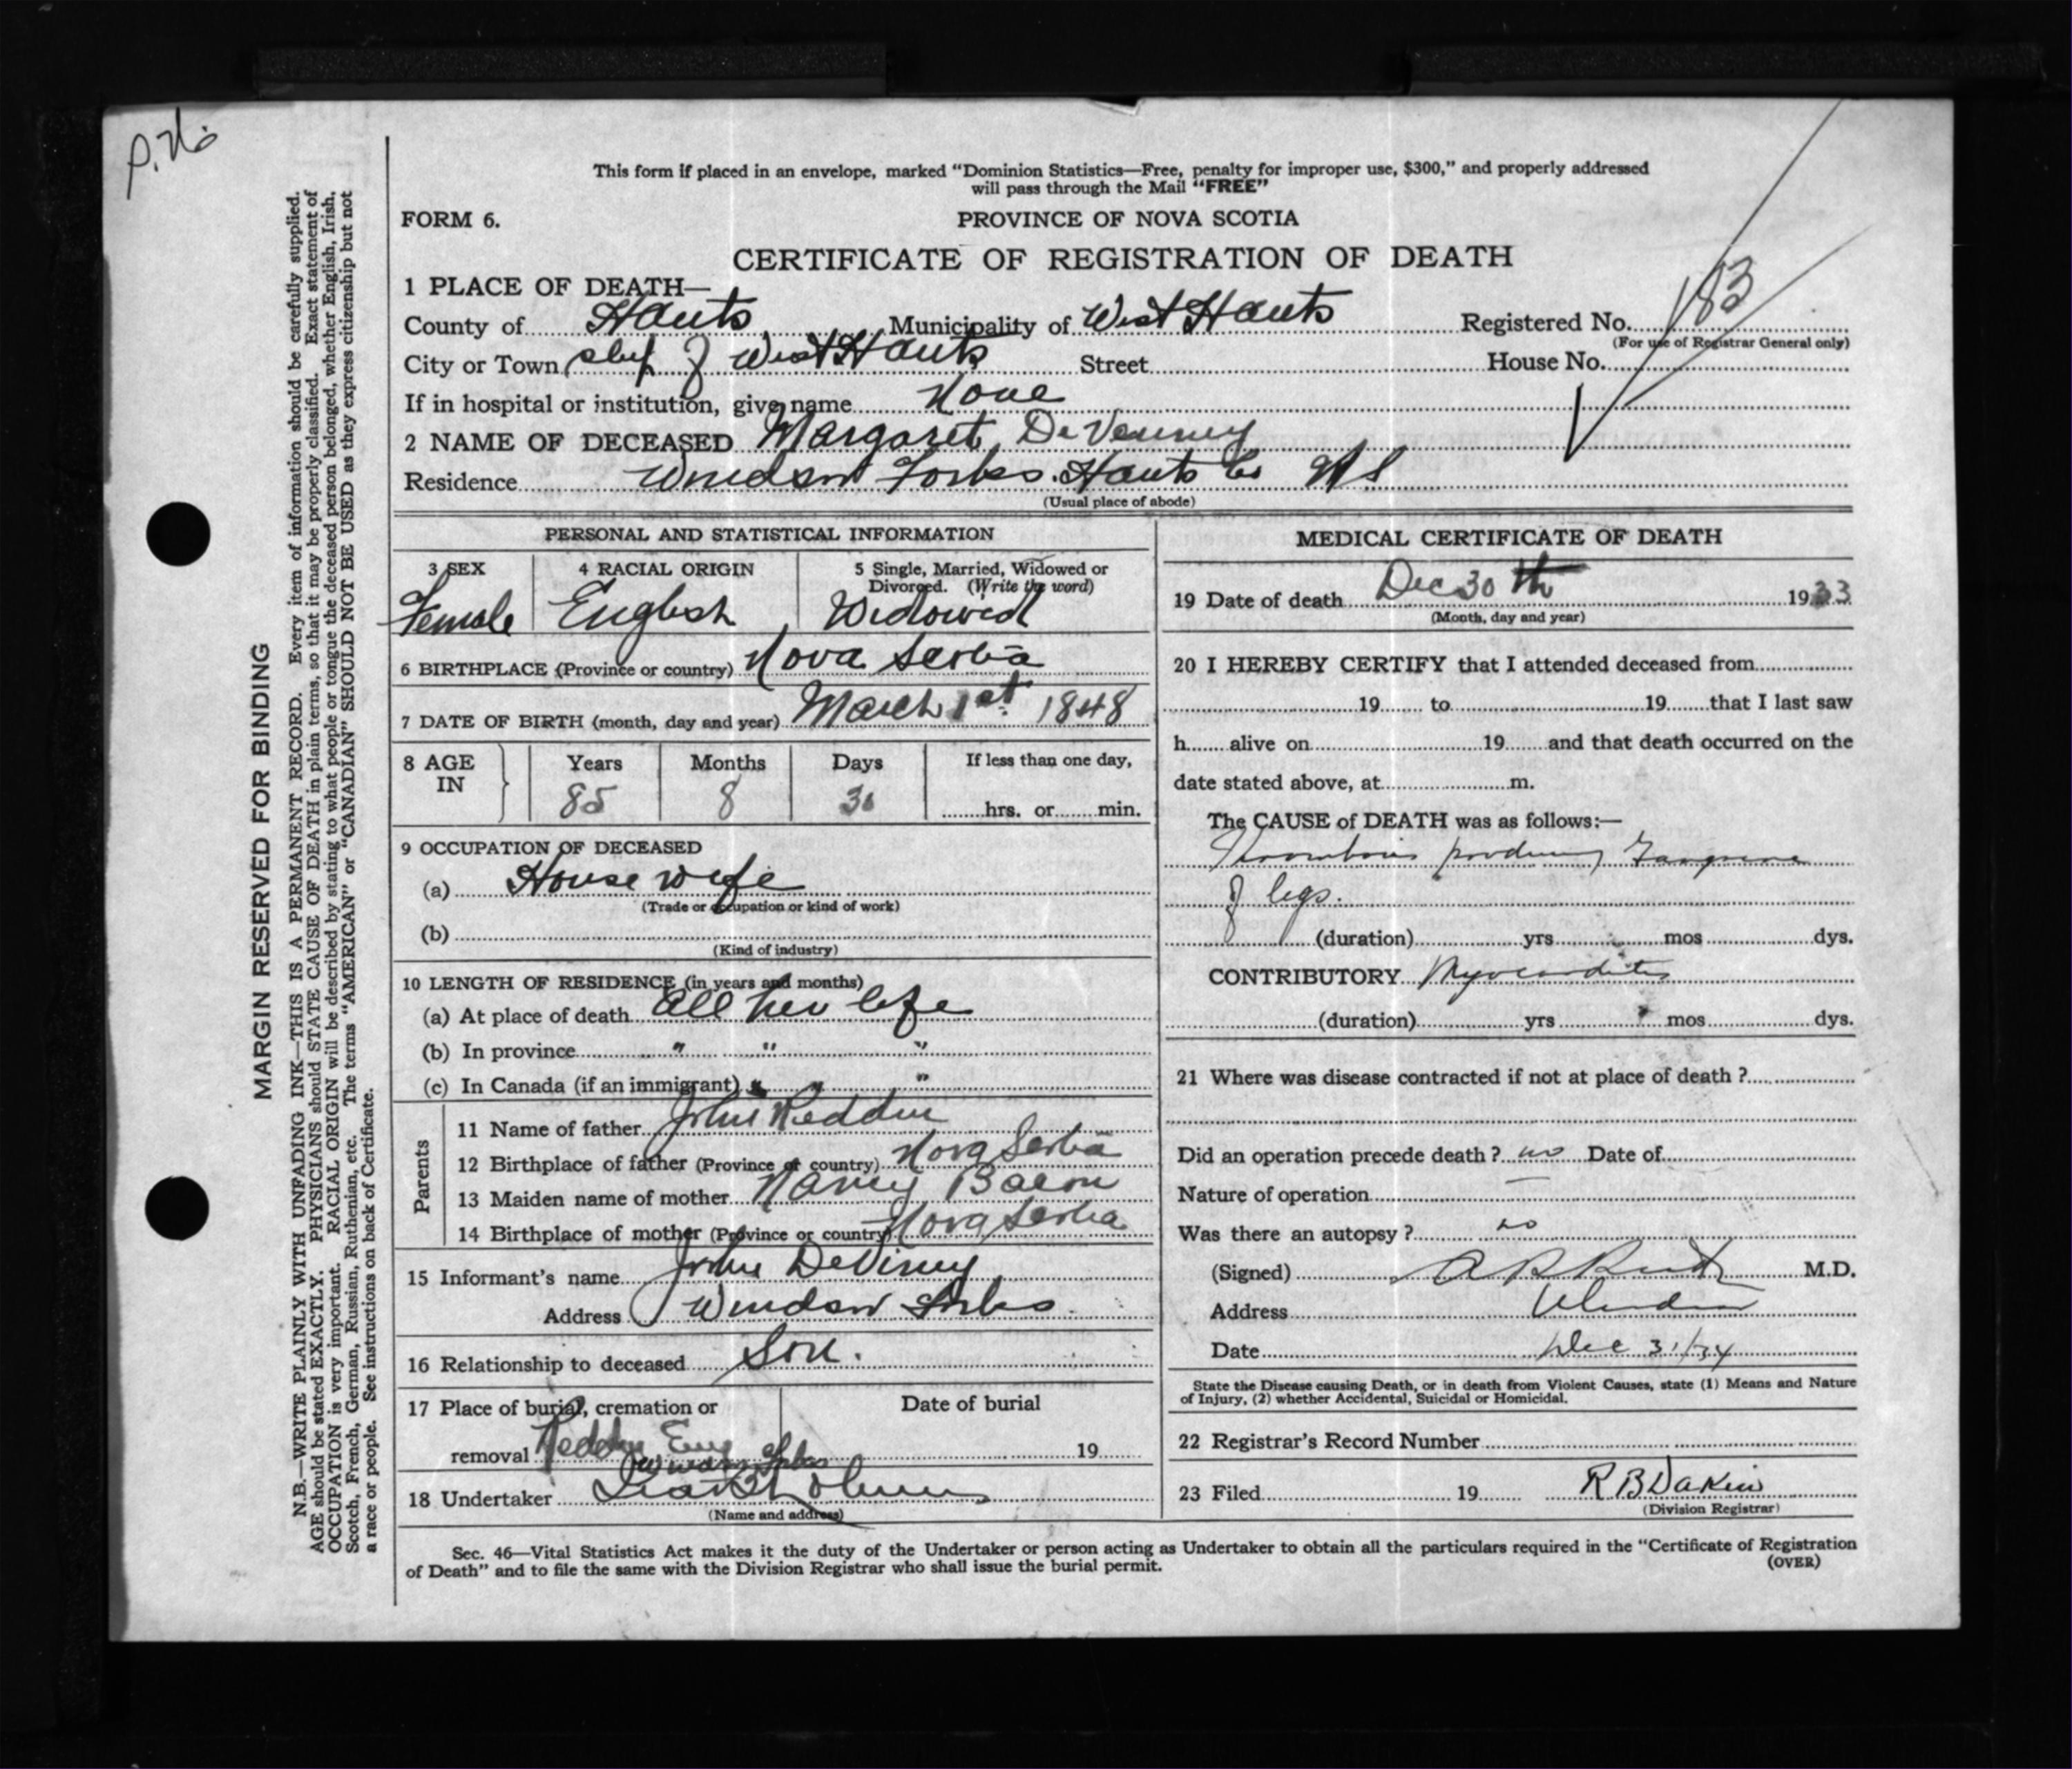 This form if placed in an envelope, marked "Dominion Statistics—Free, penalty for improper use, $300," and properly addressed
will pass through the Mail "FREE"
FORM 6.
PROVINCE OF NOVA SCOTIA
CERTIFICATE OF REGISTRATION OF DEATH
1 PLACE OF DEATH—
County of Hants Municipality of West Hants Registered No. 183
(For use of Registrar General only)
City or Town of West Hants Street House No.
If in hospital or institution, give name None
2 NAME OF DECEASED Margaret DeVenney
Residence Windsor Forks Hants Co N S
(Usual place of abode)
PERSONAL AND STATISTICAL INFORMATION
3 SEX 4 RACIAL ORIGIN 5 Single, Married, Widowed or
Divorced. (Write the word)
Female English Widowed
6 BIRTHPLACE (Province or country) Nova Scotia
7 DATE OF BIRTH (month, day and year) March 1st 1848
8 AGE Years Months Days If less than one day,
IN 85 8 30 hrs. or min.
9 OCCUPATION OF DECEASED
(a) House wife
(Trade or occupation or kind of work)
(b)
(Kind of industry)
10 LENGTH OF RESIDENCE (in years and months)
(a) At place of death All her life
(b) In province " " "
(c) In Canada (if an immigrant) " " "
Parents
11 Name of father John Redden
12 Birthplace of father (Province or country) Nova Scotia
13 Maiden name of mother Nancy Bacon
14 Birthplace of mother (Province or country) Nova Scotia
15 Informant's name John DeViney
Address Windsor Forks
16 Relationship to deceased Son.
17 Place of burial, cremation or Date of burial
removal Redden Cmy 19
Windsor Forks
18 Undertaker
(Name and address)
MEDICAL CERTIFICATE OF DEATH
19 Date of death Dec 30th 1933
(Month, day and year)
20 I HEREBY CERTIFY that I attended deceased from
19 to 19 that I last saw
h alive on 19 and that death occurred on the
date stated above, at m.
The CAUSE of DEATH was as follows:—
Thrombosis producing Gangrene
of legs.
(duration) yrs mos dys.
CONTRIBUTORY Myocarditis
(duration) yrs mos dys.
21 Where was disease contracted if not at place of death ?
Did an operation precede death ? no Date of
Nature of operation —
Was there an autopsy ? no
(Signed) M.D.
Address Windsor
Date Dec 31/34
State the Disease causing Death, or in death from Violent Causes, state (1) Means and Nature
of Injury, (2) whether Accidental, Suicidal or Homicidal.
22 Registrar's Record Number
23 Filed 19 R B Dakin
(Division Registrar)
Sec. 46—Vital Statistics Act makes it the duty of the Undertaker or person acting as Undertaker to obtain all the particulars required in the "Certificate of Registration
of Death" and to file the same with the Division Registrar who shall issue the burial permit.
(OVER)
MARGIN RESERVED FOR BINDING
N.B.—WRITE PLAINLY WITH UNFADING INK—THIS IS A PERMANENT RECORD. Every item of information should be carefully supplied.
AGE should be stated EXACTLY. PHYSICIANS should STATE CAUSE OF DEATH in plain terms, so that it may be properly classified. Exact statement of
OCCUPATION is very important. RACIAL ORIGIN will be described by stating to what people or tongue the deceased person belonged, whether English, Irish,
Scotch, French, German, Russian, Ruthenian, etc. The terms "AMERICAN" or "CANADIAN" SHOULD NOT BE USED as they express citizenship but not
a race or people. See instructions on back of Certificate.